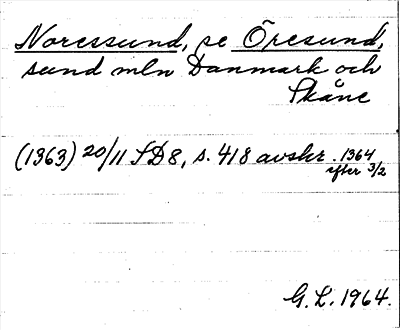 Noressund, se Öresund,
sund mln Danmark och
Skåne
(1363) 20/11 SD8, s. 418 avskr. 1364
efter 3/2
G. L. 1964.